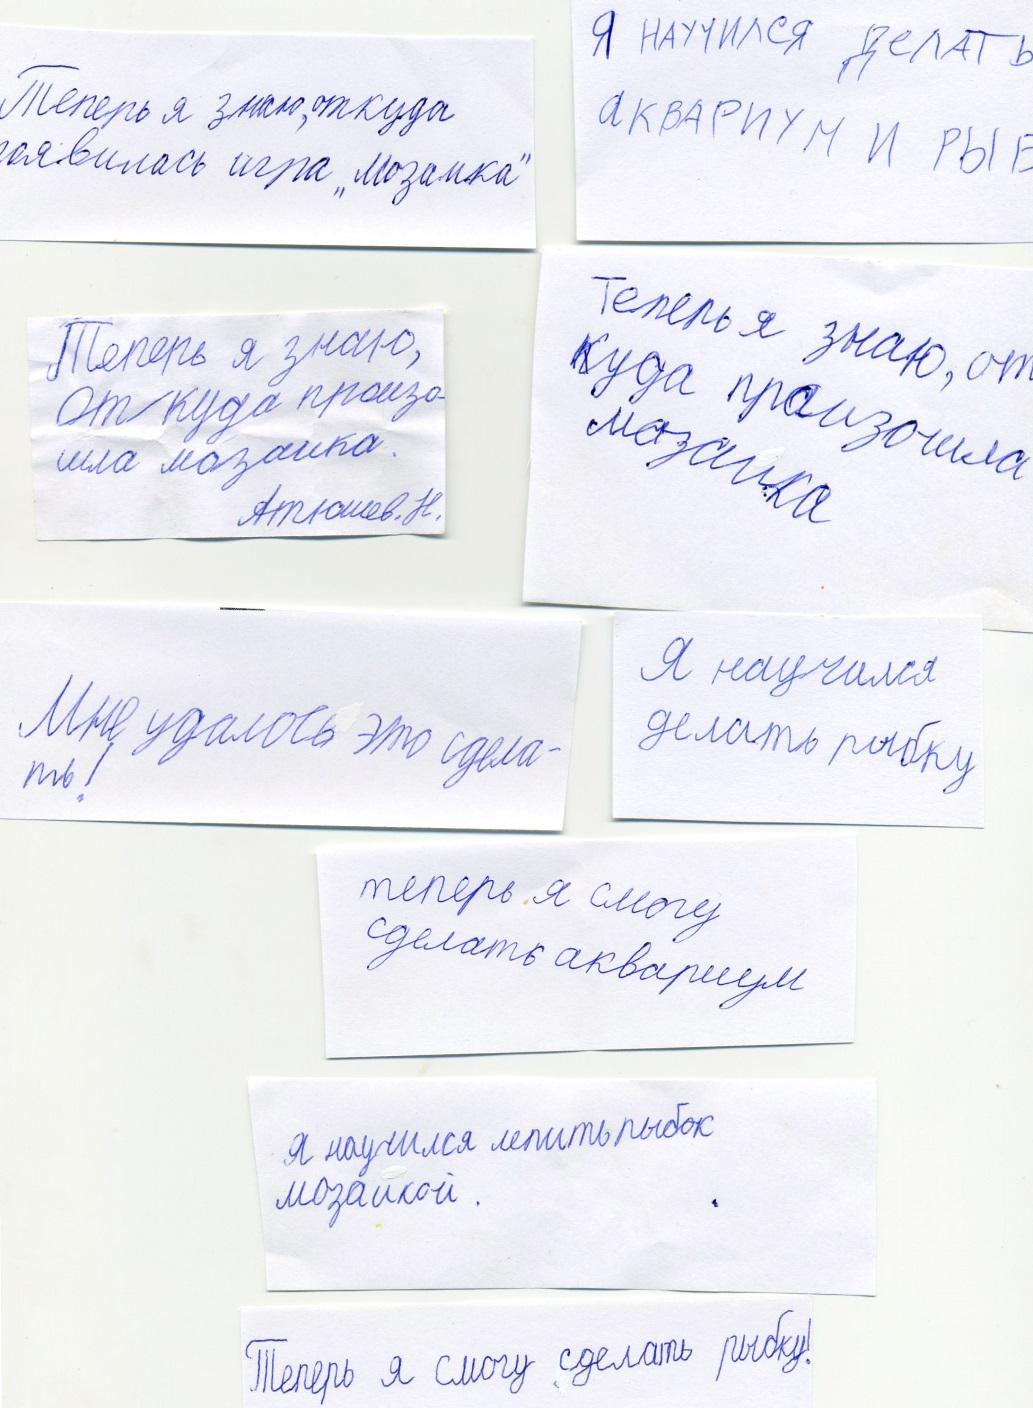 Теперь я знаю, откуда
появилась игра „Мозаика"
Я НАУЧИЛСЯ ДЕЛАТЬ
АКВАРИУМ И РЫБ
Теперь я знаю,
откуда произо-
шла мозаика.
Атюшев.Н.
Теперь я знаю, от
куда произошла
мазаика
Мне удалось это сдела-
ть!
Я научился
делать рыбку
теперь я смогу
сделать аквариум
Я научился лепить рыбок
мозаикой.
Теперь я смогу сделать рыбку!